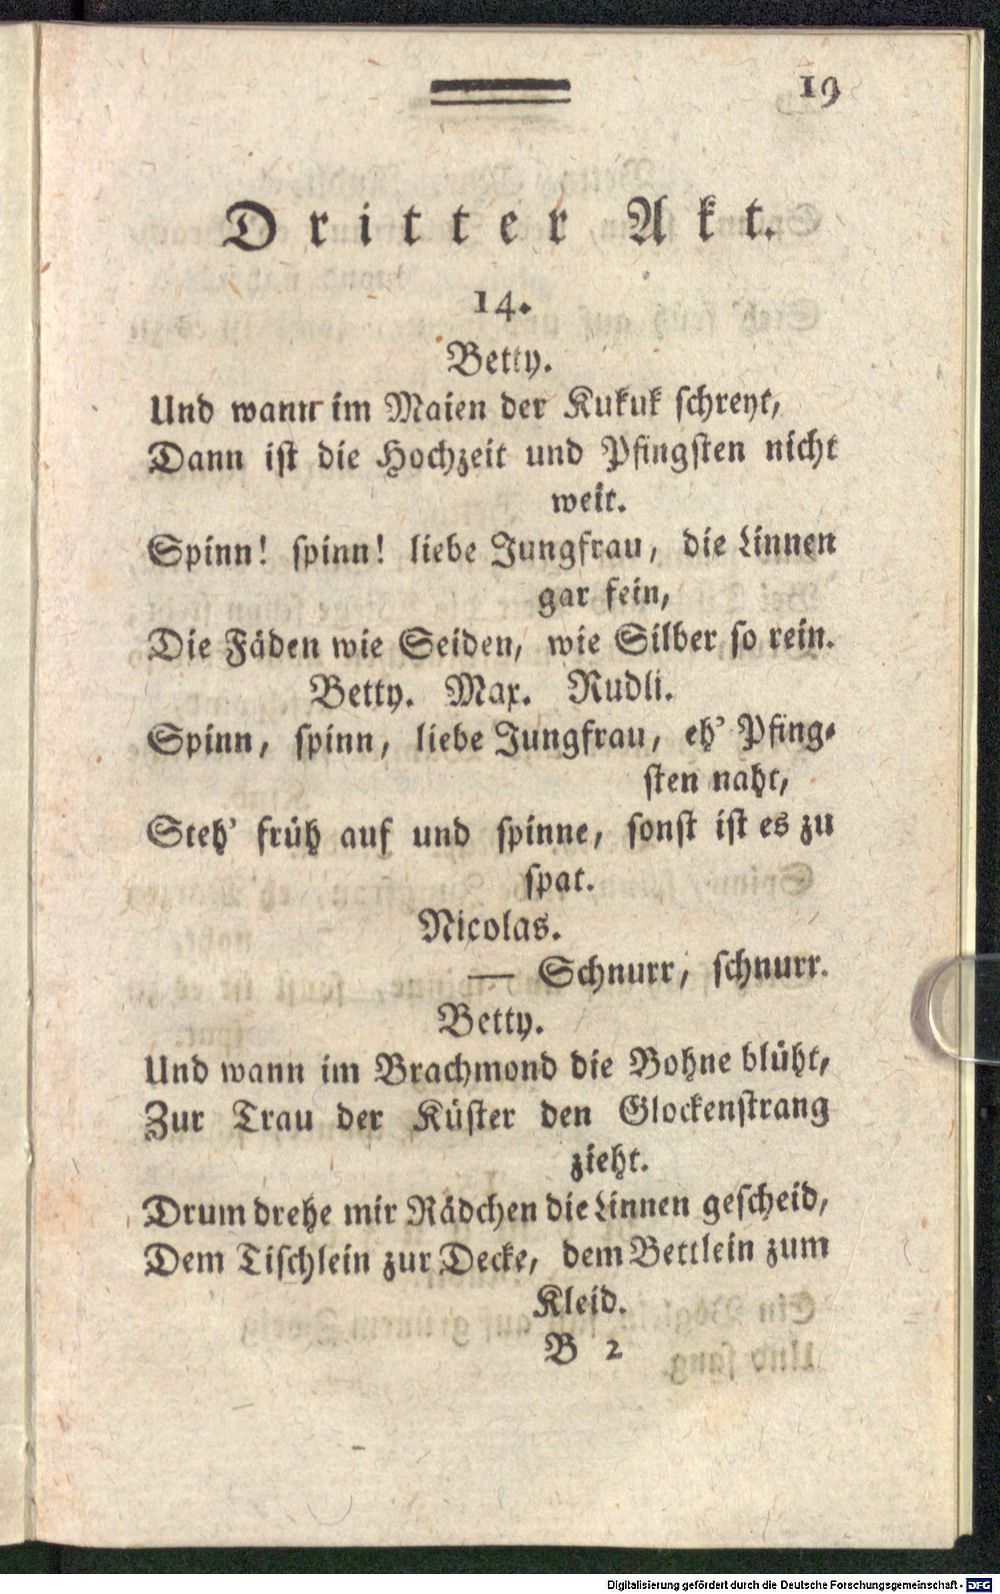 19
Dritter Akt.
14.
Betty.
Und wann im Maien der Kukuk schreyt,
Dann ist die Hochzeit und Pfingsten nicht
weit.
Spinn! spinn! liebe Jungfrau, die Linnen
gar fein,
Die Fäden wie Seiden, wie Silber so rein.
Betty. Max. Rudli.
Spinn, spinn, liebe Jungfrau, eh' Pfing-
sten naht,
Steh' früh auf und spinne, sonst ist es zu
spat.
Nicolas.
— Schnurr, schnurr.
Betty.
Und wann im Brachmond die Bohne blüht,
Zur Trau der Küster den Glockenstrang
zieht.
Drum drehe mir Rädchen die Linnen gescheid,
Dem Tischlein zur Decke, dem Bettlein zum
Kleid.
B 2
Digitalisierung gefördert durch die Deutsche Forschungsgemeinschaft - DFG